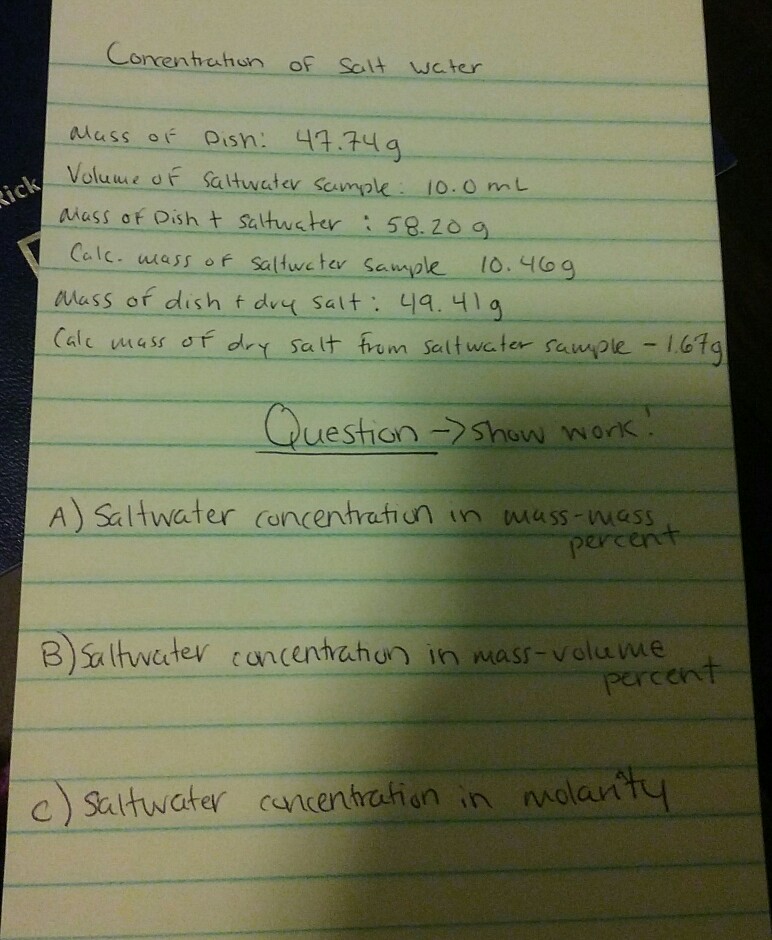 Concentration of Salt Water
Mass of Dish: 47.74g
Rick
Volume of Saltwater Sample: 10.0 mL
Mass of Dish + Saltwater : 58.20 g
Calc. mass of Saltwater Sample 10.46g
Mass of dish + dry salt: 49.41g
Calc mass of dry salt from saltwater sample - 1.67g
Question -> Show work!
A) Saltwater concentration in mass-mass
percent
B) Saltwater concentration in mass-volume
percent
C) Saltwater concentration in molarity